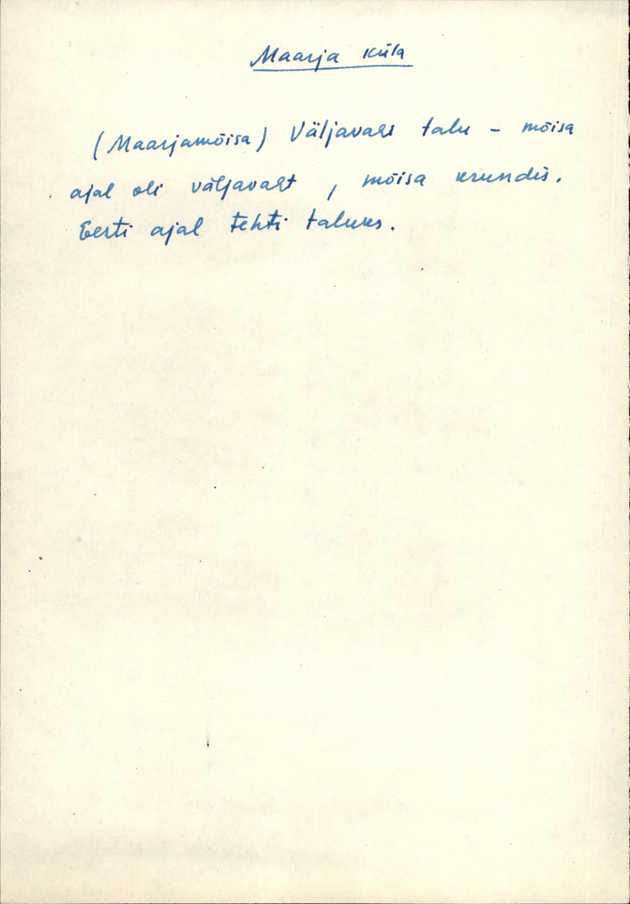 Maarja küla
(Maarjamõisa) Väljavaht talu - mõisa
ajal oli väljavaht, mõisa krundis.
Eesti ajal tehti taluks.